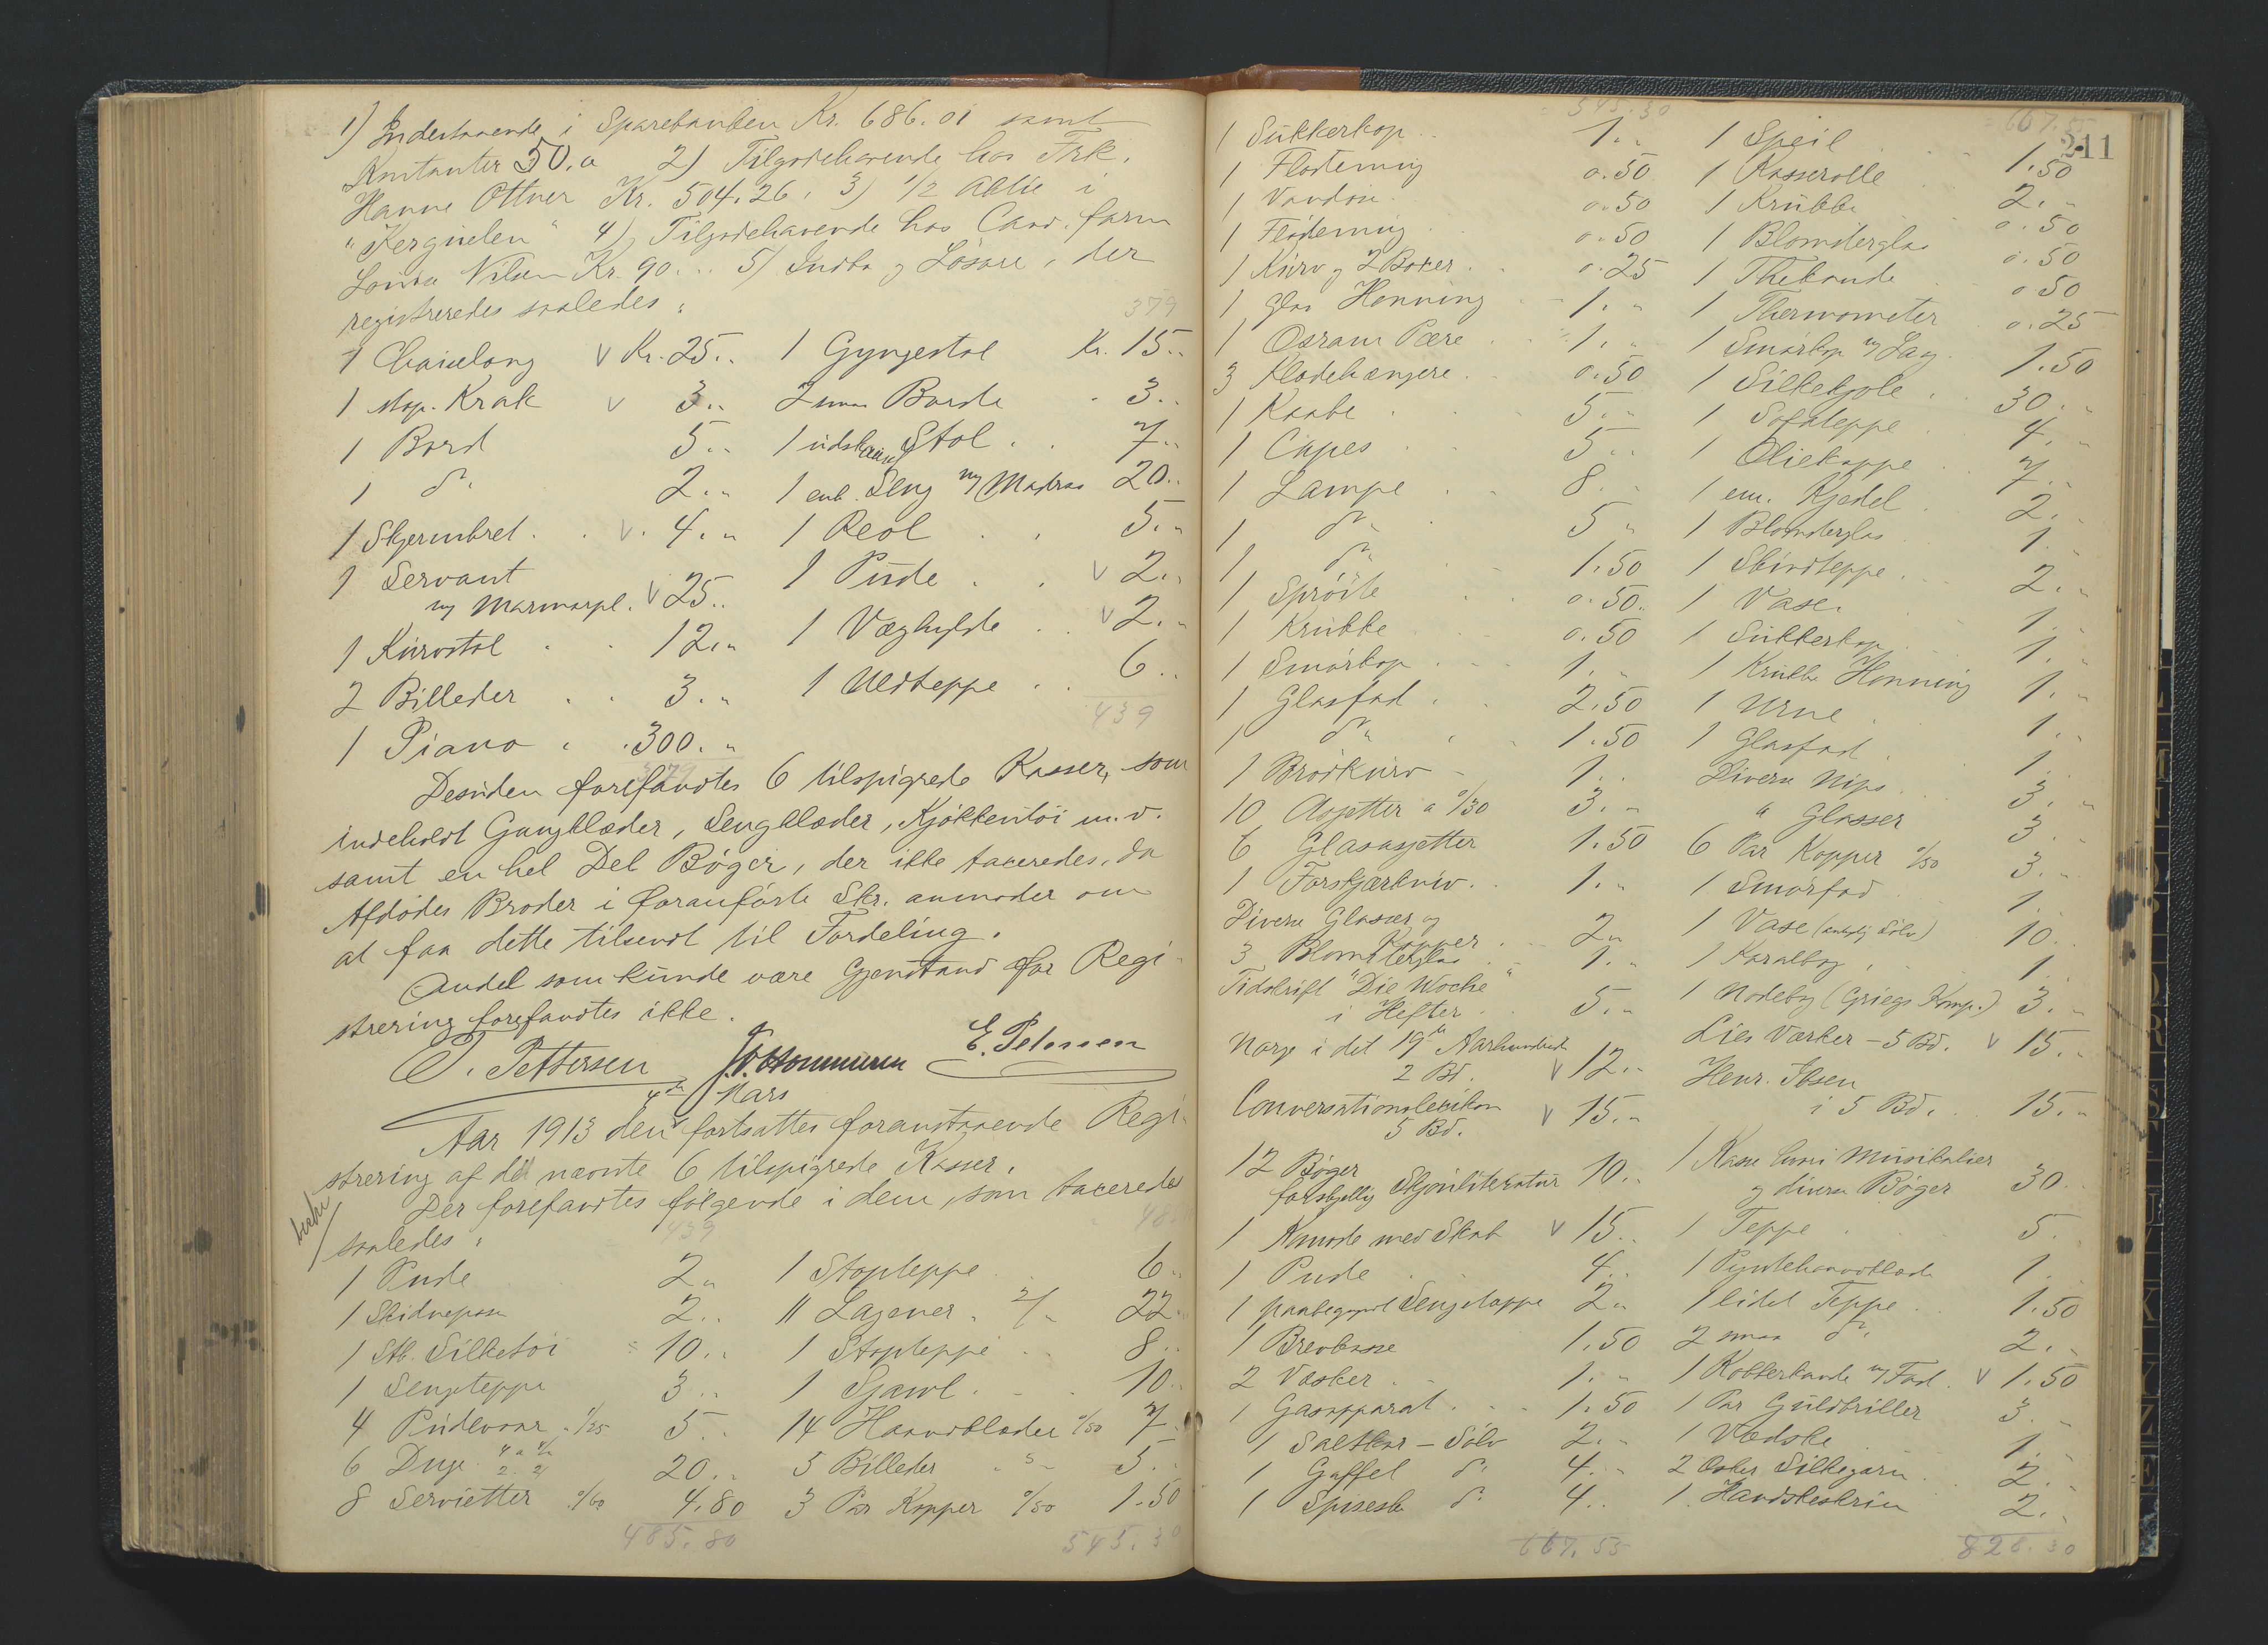 1) Indestaaende i Sparebanken Kr. 686.01 samt
Kontanter 50.a 2) Tilgodehavende hos Frk.
Hanne Ottner Kr. 504.26. 3) 1/2 Aktie i
"Kerguelen" 4) Tilgodehavende hos Cand. farm
Lovisa Nilsen Kr. 90... 5) Indbo og Løsøre, der
registreredes saaledes:
379
1 Chaiselong V Kr. 25.. 1 Gyngestol Kr. 15..
1 stop. Krak V 3.. 2 smaa Borde 3..
1 Bord 5.. 1 udskaaret Stol 7..
1 do 2.. 1 enk. Seng m/ Madras 20..
1 Skjermbret V. 4.. 1 Reol 5..
1 Servant
m/ Marmorpl. V 25.. 1 Pude V 2..
1 Kurvstol 12.. 1 Væghylde V 2..
2 Billeder 3.. 1 Uldteppe 6..
1 Piano 300..
379
439
Desuden forefandtes 6 tilspigrede Kasser, som
indeholdt Gangklæder, Sengklæder, Kjøkkentøi m.v.
samt en hel Del Bøger, der ikke taxeredes, da
Afdødes Broder i foranførte Skr. anmoder om
at faa dette tilsendt til Fordeling.
Andet som kunde være Gjenstand for Regi-
strering forefandtes ikke.
O. Pettersen E. Petersen
Aar 1913 den 4de Mars fortsattes foranstaaende Regi-
strering af de nævnte 6 tilspigrede Kasser.
Der forefandtes følgende i dem, som taxeredes
saaledes:
439
1 Pude 2.. 1 Stopteppe 6..
1 Skidnepose 2.. 11 Lagener 2/.. 22..
1 Stk. Silketøi 10.. 1 Stopteppe 8..
1 Sengeteppe 3.. 1 Sjawl 10..
4 Pudevaar 1/25 5.. 14 Haandklæder 0/50 7..
6 Duge 20.. 5 Billeder 5..
8 Servietter 0/60 4.80 3 Par Kopper 0/50 1.50
485.80 545.30
= 545.30
= 667.55
241
1 Sukkerkop 1..
1 Flødemug 0.50
1 Vandøse 0.50
1 Flødemug 0.50
1 Kurv og 2 Boxer 0.25
1 Glas Honning 1..
1 Osram Pære 1..
3 Klædehængere 0.50
1 Kaabe 5..
1 Capes 5..
1 Lampe 8..
1 do 5..
1 do 1.50
1 Sprøite 0.50
1 Krukke 0.50
1 Smørkop 1..
1 Glasfad 2.50
1 do 1.50
1 Brødkurv 1..
10 Asjetter a 0/30 3..
6 Glasasjetter 1.50
1 Forskjærkniv 1..
Diverse Glasser og
Kopper 2..
3 Blomsterglas 1..
Tidskrift "Die Woche"
i Hefter 5..
Norge i det 19de Aarhundrede
2 Bd. V 12..
Conversationslexikon
5 Bd. V 15..
12 Bøger
forskjellig Skjønliteratur 10..
1 Komode med Skab V 15..
1 Pude 4..
1 paabegyndt Sengeteppe 2..
1 Brevkasse 1.50
2 Væsker 1..
1 Gasapparat 1.50
1 Saltkar – Sølv 2..
1 Gaffel do 4..
1 Spisesk do 4..
667.55
1 Speil 1.50
1 Kasserolle 2..
1 Krukke 0.50
1 Blomsterglas 0.50
1 Thekande 0.50
1 Thermometer 0.25
1 Smørkop m/ Lag 1.50
1 Silkekjole 30..
1 Sofateppe 4..
1 Oliekappe 7..
1 em. Kjedel 2..
1 Blomsterglas 1..
1 Skindteppe 2..
1 Vase 1..
1 Sukkerkop 1..
1 Krukke Honning 1..
1 Urne 1..
1 Glasfad 1..
Diverse Nips 3..
" Glasser 3..
6 Par Kopper 0/50 3..
1 Smørfad 1..
1 Vase (antagelig Sølv) 10..
1 Koralbog 1..
1 Nodebog (Griegs Komp.) 3..
Lies Værker – 5 Bd. V 15..
Henr. Ibsen
i 5 Bd. 15..
1 Kasse Musikalier
og diverse Bøger 30..
1 Teppe 5..
1 Pyntehaandklæde 1..
1 lidet Teppe 1.50
2 smaa do 2..
1 Kobberkande m/ Fad V 1.50
1 Par Guldbriller 3..
1 Vædske 1..
2 Æsker Silkegarn 2..
1 Handskeskrin 2..
828.30